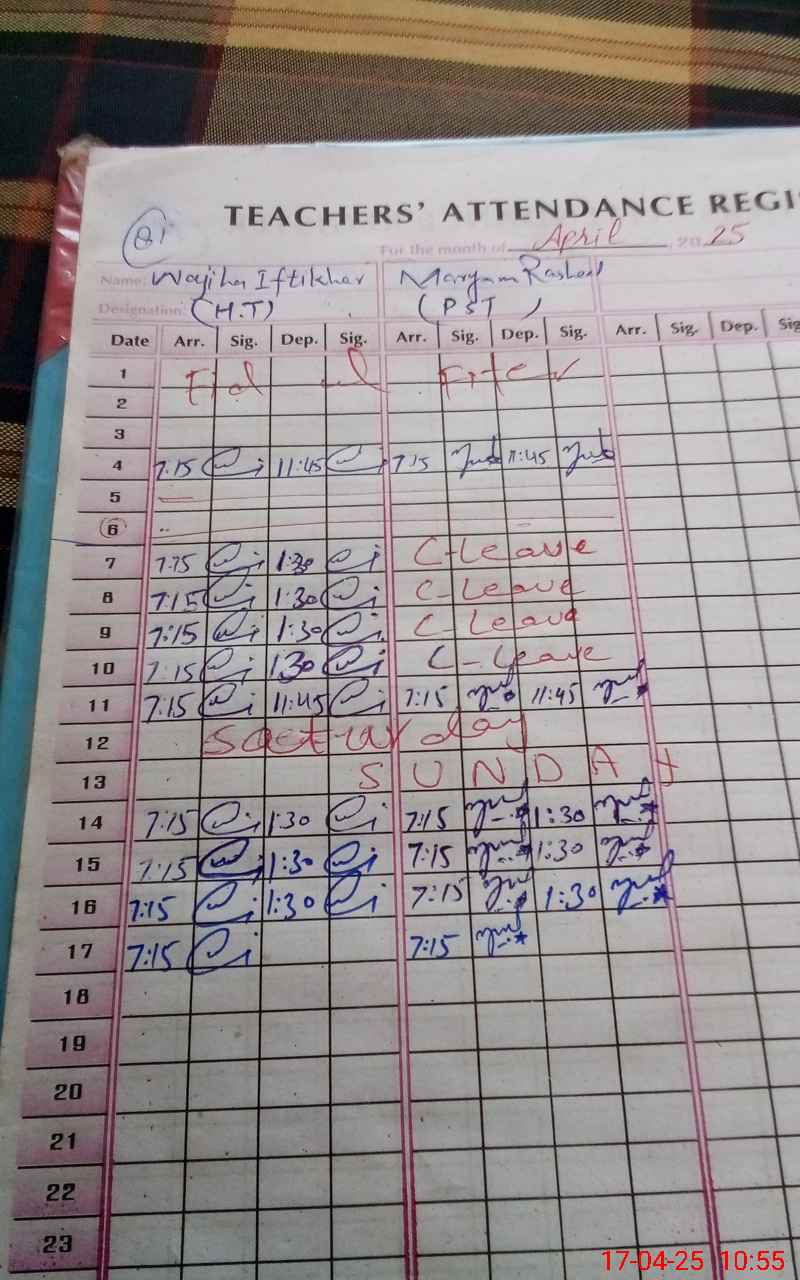 TEACHERS' ATTENDANCE REGI
01
For the month of April 2025
Name: Wajiha Iftikhar Maryam Rasheed
Designation: (H.T) (PST)
Date Arr. Sig. Dep. Sig. Arr. Sig. Dep. Sig. Arr. Sig. Dep. Sig
1 Eid ul Fiter
2
3
4 7:15 11:45 7:15 11:45
5
6
7 7:15 1:30 C-Leave
8 7:15 1:30 C-Leave
9 7:15 1:30 C-Leave
10 7:15 1:30 C-Leave
11 7:15 11:45 7:15 11:45
12 Saeturday
13 SUNDAY
14 7:15 1:30 7:15 1:30
15 7:15 1:30 7:15 1:30
16 7:15 1:30 7:15 1:30
17 7:15 7:15
18
19
20
21
22
23
17-04-25 10:55